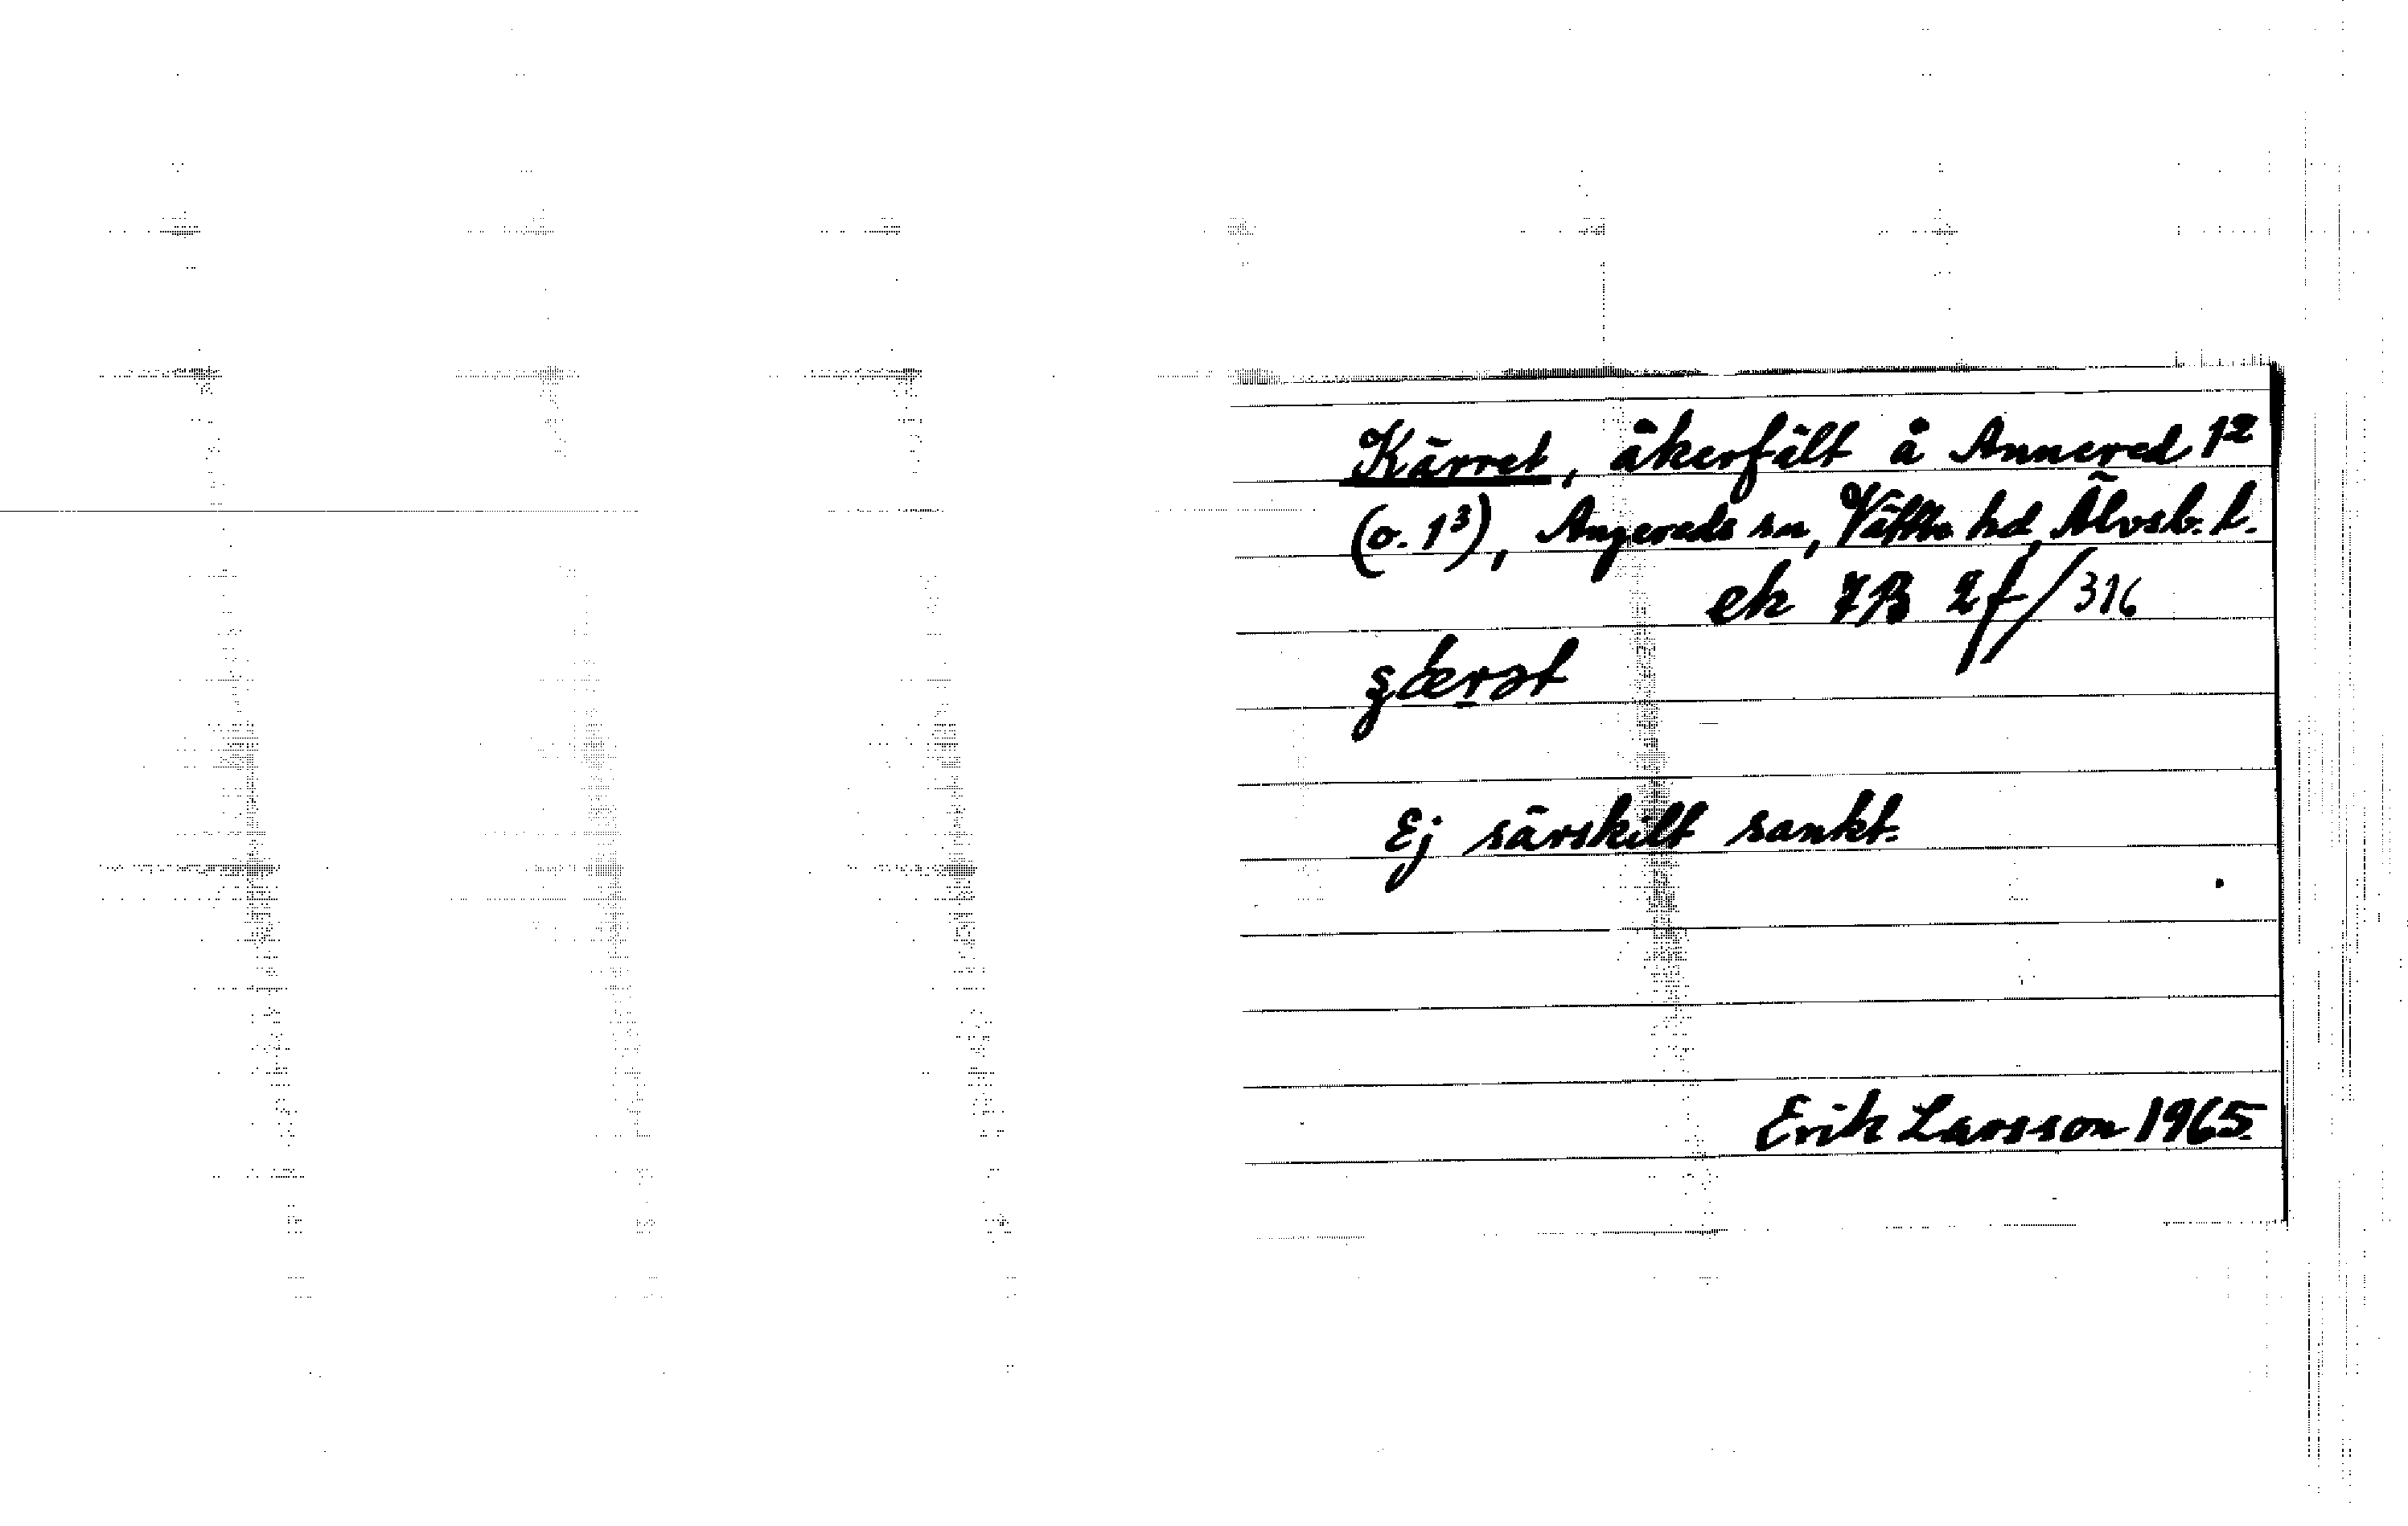 Kärret, åkerfält å Annered 1²
(o. 1³), Angereds sn, Vättle hd, Älvsb. l.
ek 7B 2f/316
Ej särskilt sankt.
Erik Larsson 1965